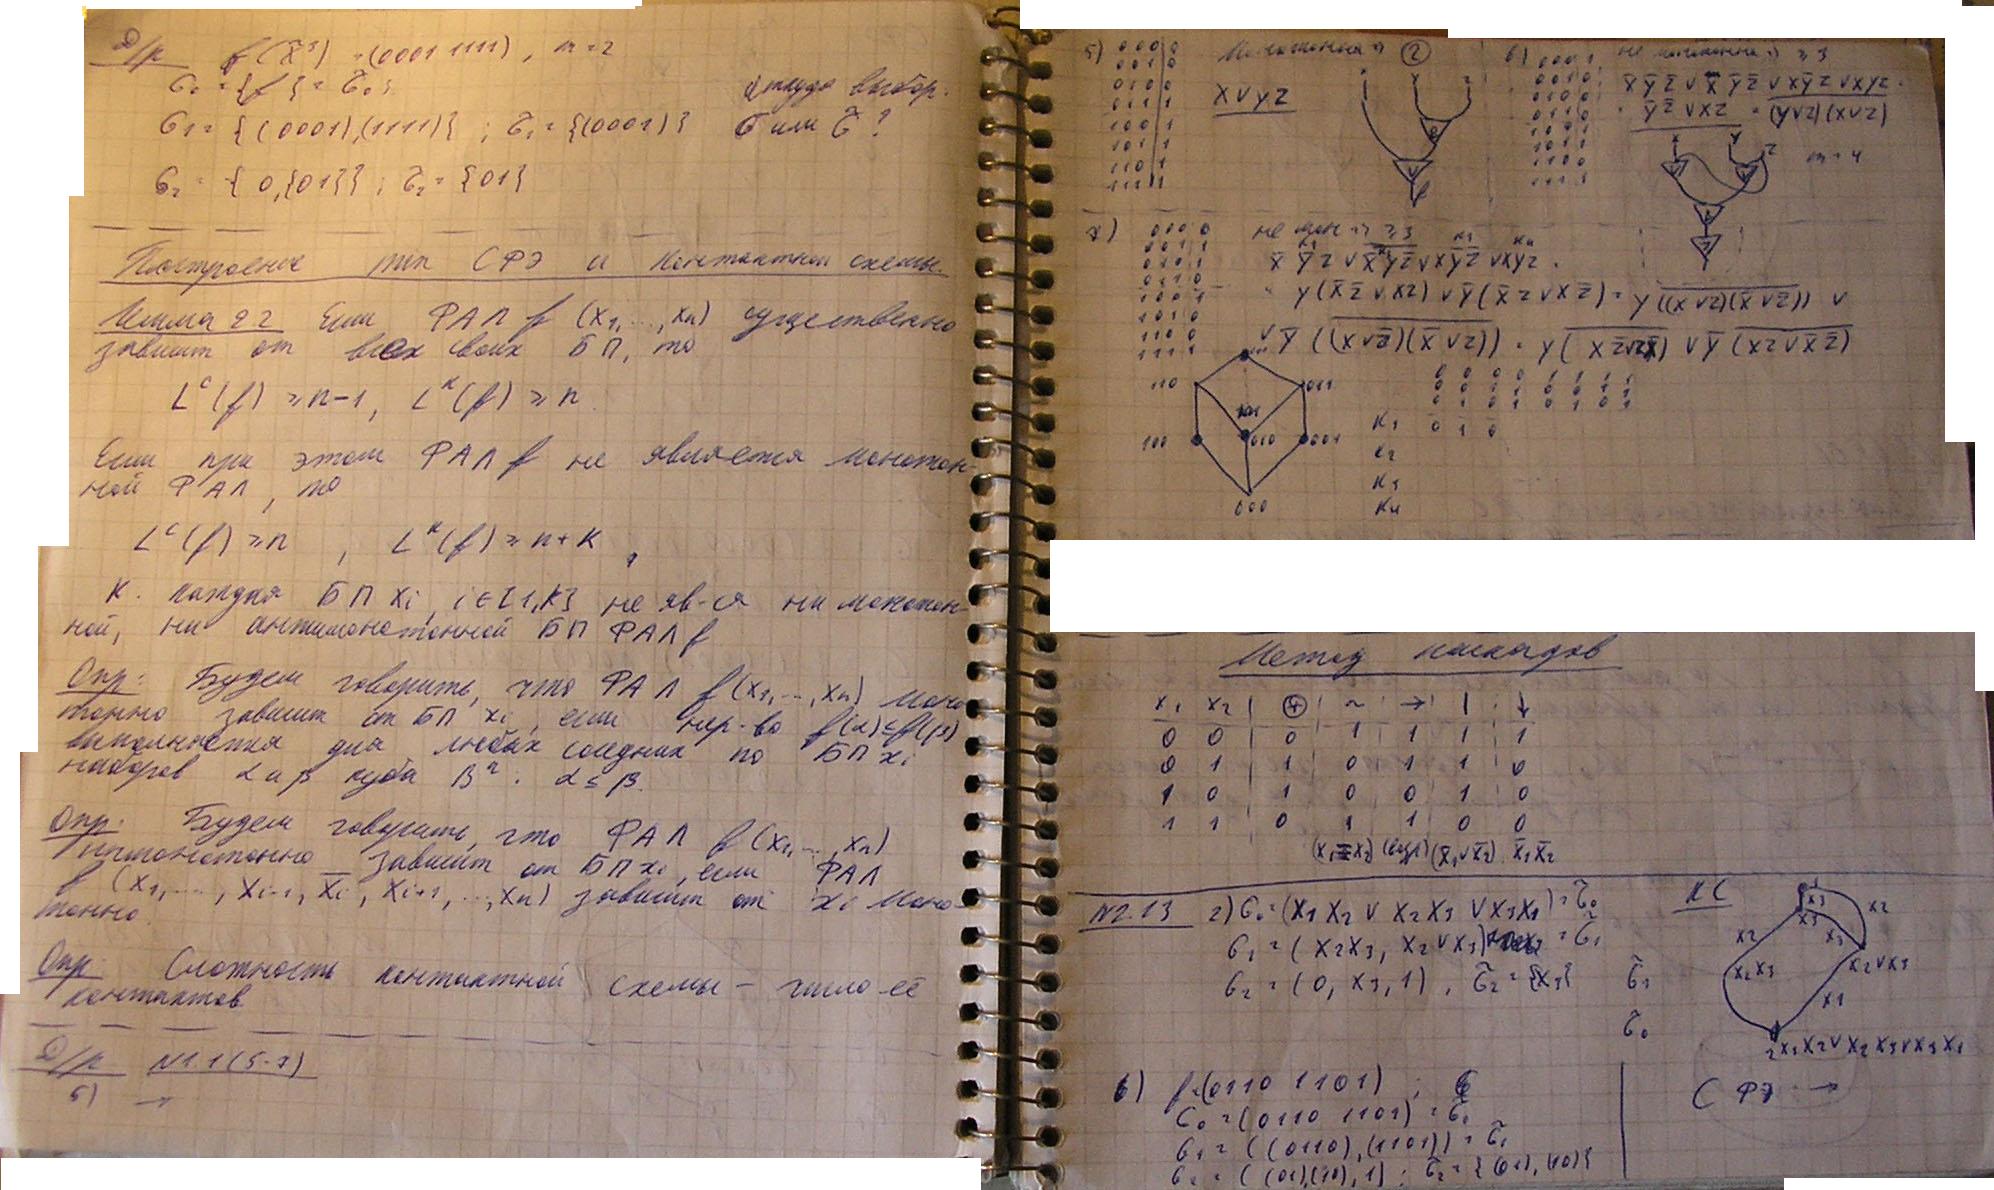 Д/р f(x̃³) = (0001 1111), m=2
G₀ = {f} = G̃₀;
откуда выбор.
G₁ = {(0001),(1111)} ; G̃₁ = {(0001)}
G или G̃ ?
G₂ = {0,{01}} ; G̃₂ = {01}
Построение СФЭ и контактной схемы.
Лемма 2.2 Если ФАЛ f (x₁,...,xₙ) существенно
зависит от всех своих БП, то
Lᶜ(f) ≥ n-1, Lᵏ(f) ≥ n.
Если при этом ФАЛ f не является монотон-
ной ФАЛ, то
Lᶜ(f) ≥ n , Lᵏ(f) ≥ n+k ,
К. каждая БП xi, i∈[1,k] не яв-ся ни монотон-
ной, ни антимонотонной БП ФАЛ f
Опр: Будем говорить, что ФАЛ f(x₁,...,xₙ) моно
тонно зависит от БП xi, если нер-во f(α)≤f(β)
выполняется для любых соседних по БП xi
наборов α и β куба Bⁿ : α ≤ β.
Опр: Будем говорить, что ФАЛ f(x₁,...,xₙ)
зависит от БП xi, если ФАЛ
f(x₁,...,xᵢ₋₁, x̄ᵢ, xᵢ₊₁,...,xₙ) зависит от xi моно-
тонно.
Опр: Сложность контактной схемы – число её
контактов
Д/р N1.1(5-7)
5) →
5)
0000
0010
0100
0111
1001
1011
1101
1111
Монотонная ⇒ ②
X∨yz
6)
0001
0010
0100
1011
1100
1111
не монотонная ⇒ ≥3
ȳz̄ ∨ xz = (y∨z)(x∨z)
m=4
7)
0000
0011
0101
0110
1001
1010
1100
1111
не мон ⇒ ≥3
x̄ȳz ∨ x̄yz̄ ∨ xȳz̄ ∨ xyz .
= y(x̄z̄ ∨ xz) ∨ ȳ(x̄z ∨ xz̄) = y((x∨z)(x̄∨z̄)) ∨
∨ ȳ((x∨z̄)(x̄∨z)) =
110
011
101
100
010
001
000
0 0 0 0 1 1 1 1
0 0 1 1 0 0 1 1
0 1 0 1 0 1 0 1
K₁ 0 1 0
K₂
K₃
K₄
Метод каскадов
x₁ x₂ ⊕ ~ → | ↓
0 0 0 1 1 1 1
0 1 1 0 1 1 0
1 0 1 0 0 1 0
1 1 0 1 1 0 0
(x̄₁∨x̄₂) x̄₁x̄₂
N2.13 2) G₀ = (x₁x₂ ∨ x₂x₃ ∨ x₃x₁) = G̃₀
G₁ = (x₂x₃, x₂∨x₃) = G̃₁
G₂ = (0, x₃, 1) , G̃₂ = {x₃}
КС
x₃
x₃
x₂
x₂
x₃
x₂x₃
x₂∨x₃
x₁
G̃₁
G̃₀
x₁x₂ ∨ x₂x₃ ∨ x₃x₁
в) f=(0110 1101) ;
G₀ = (0110 1101) = G̃₀
G₁ = ((0110),(1101)) = G̃₁
G₂ = ((01),(10),1) ; G̃₂ = {(01),(10)}
СФЭ →